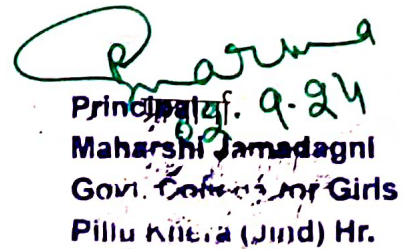 Principal 9.24
Maharshi Jamadagni
Govt. College for Girls
Pillu Khera (Jind) Hr.